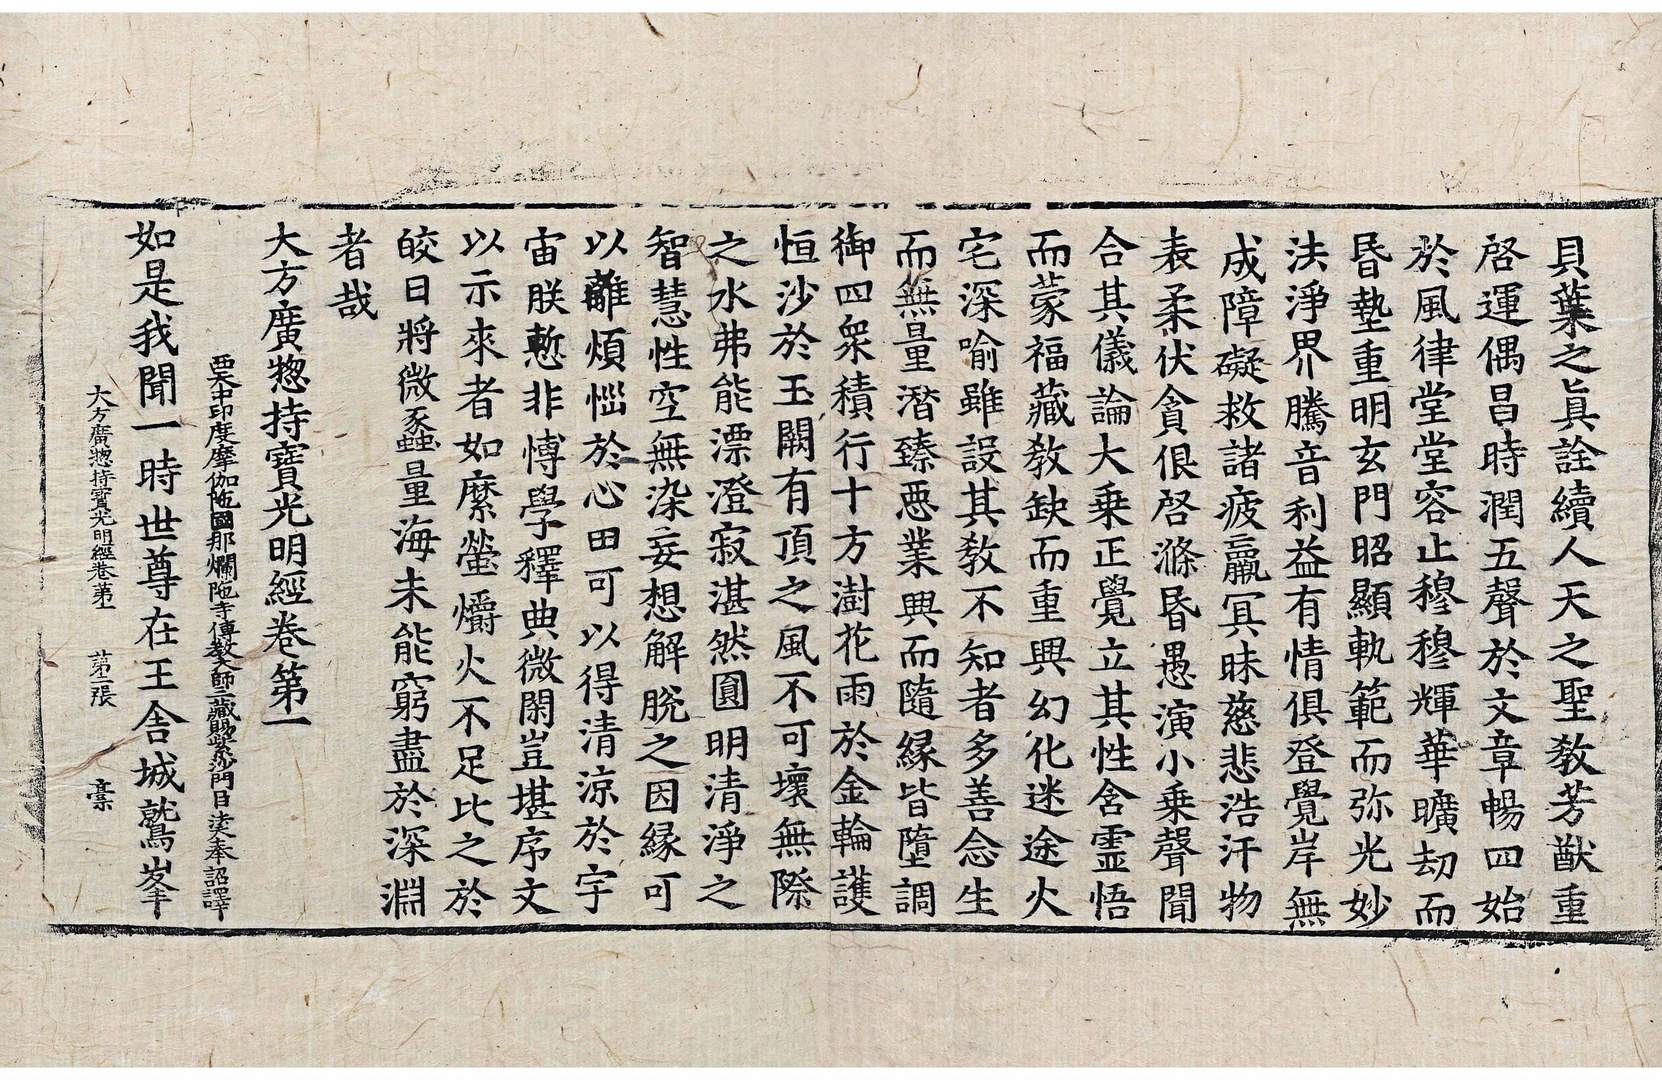 貝葉之旨真詮續人天之聖敎芳猷重
啓運偶昌時潤五聲於文章暢四始
於風律堂堂容止穆穆輝華曠劫而
昏墊重明玄門昭顯軌範而弥光妙
法淨界騰音利益有情俱登覺岸無
成障礙救諸疲羸冥昧慈悲浩汗物
表柔伏貪佷啓滌昏愚演小乘聲聞
合其儀論大乘正覺立其性含靈悟
而蒙福藏敎缺而重興幻化迷途火
宅深喻雖設其敎不知者多善念生
而無量潛臻惡業興而隨緣皆墮調
御四衆積行十方澍花雨於金輪護
恒沙於玉闕有頂之風不可壞無際
之水弗能漂澄寂湛然圓明清淨之
智慧性空無染妄想解脫之因緣可
以離煩惱於心田可以得清涼於宇
宙朕慙非愽學釋典微閑豈堪序文
以示來者如縻螢爝火不足比之於
皎日將微蠡量海未能窮盡於深淵
者哉
大方廣惣持寶光明經卷第一
西天中印度摩伽陁國那爛陁寺傳敎大師三藏賜紫沙門臣法天奉 詔譯
如是我聞一時世尊在王舍城鷲峯
大方廣惣持寶光明經卷第一 第二張 橐